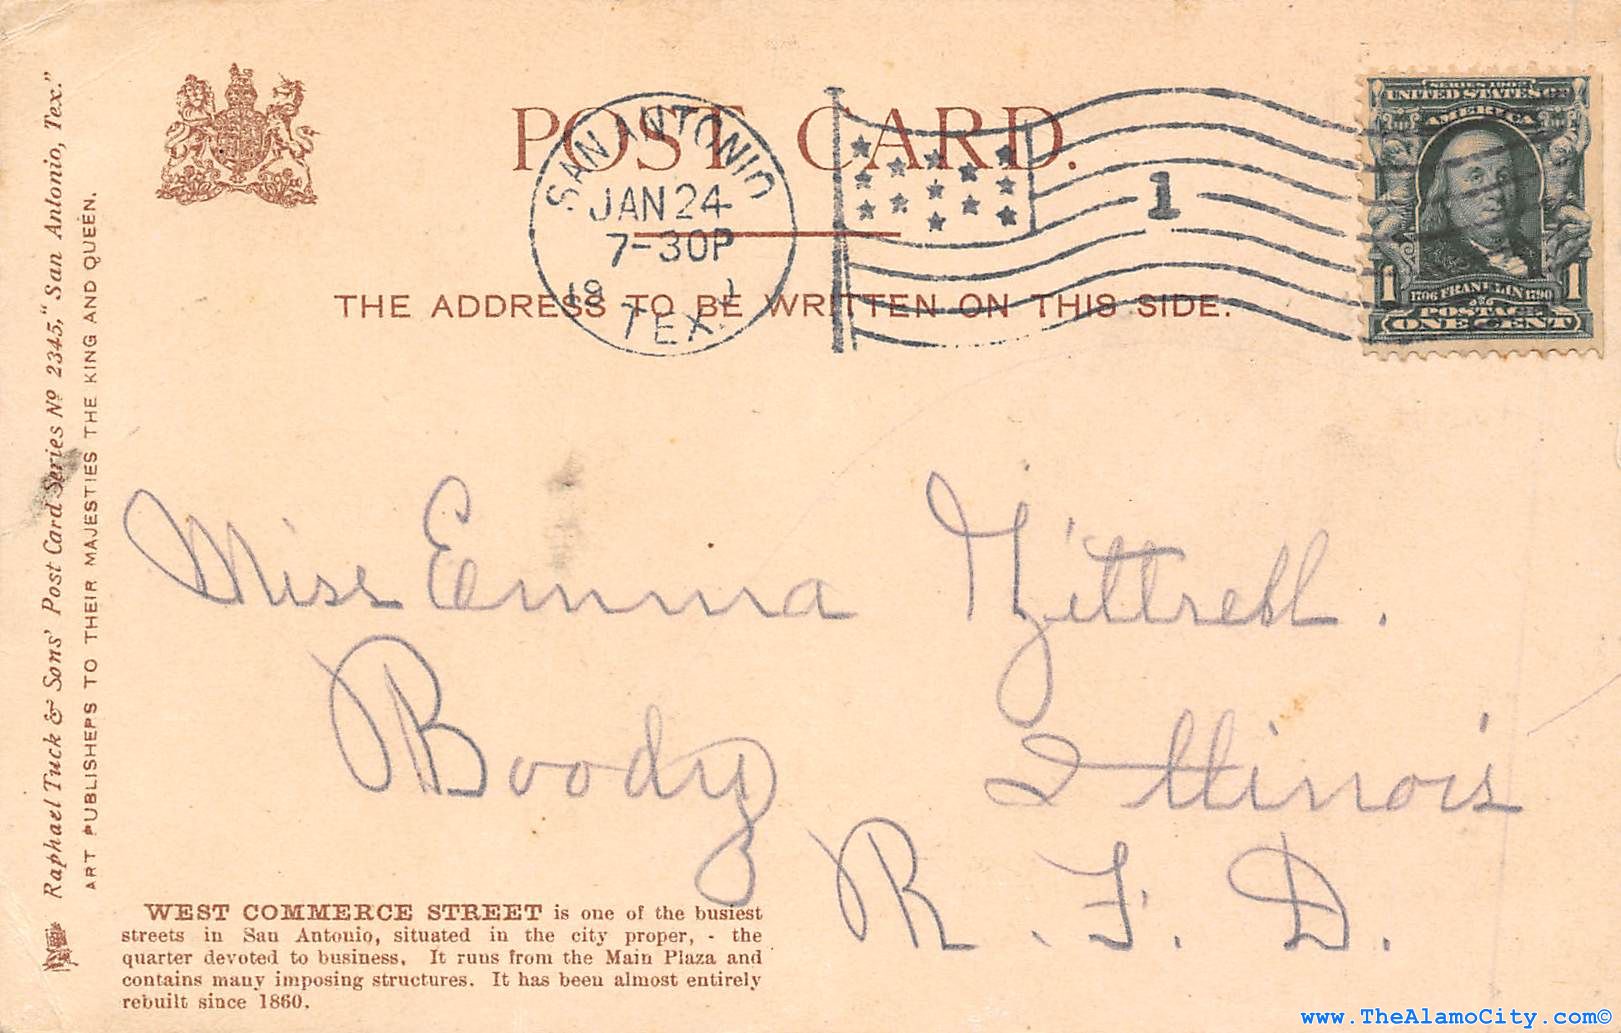 POST CARD.
SAN ANTONIO
JAN 24
7-30P
19 1
TEX.
1
SERIES 1902
UNITED STATES OF
AMERICA
1 1706 FRANKLIN 1790 1
POSTAGE
ONE CENT
THE ADDRESS TO BE WRITTEN ON THIS SIDE.
Raphael Tuck & Sons' Post Card Series No 2345, "San Antonio, Tex."
ART PUBLISHERS TO THEIR MAJESTIES THE KING AND QUEEN.
Miss Emma
Boody Illinois
R. F. D.
WEST COMMERCE STREET is one of the busiest
streets in San Antonio, situated in the city proper, - the
quarter devoted to business. It runs from the Main Plaza and
contains many imposing structures. It has been almost entirely
rebuilt since 1860.
www.TheAlamoCity.com©